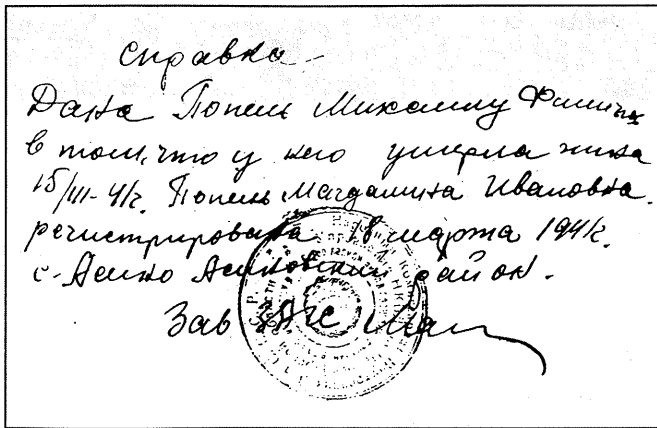 Справка
Дана Попель Михаилу
в том, что у него умерла жена
15/III-41г. Попель Магдалина Ивановна.
регистрирована 18 марта 1941г.
с. Асино Асиновский район.
Зав ЗАГС